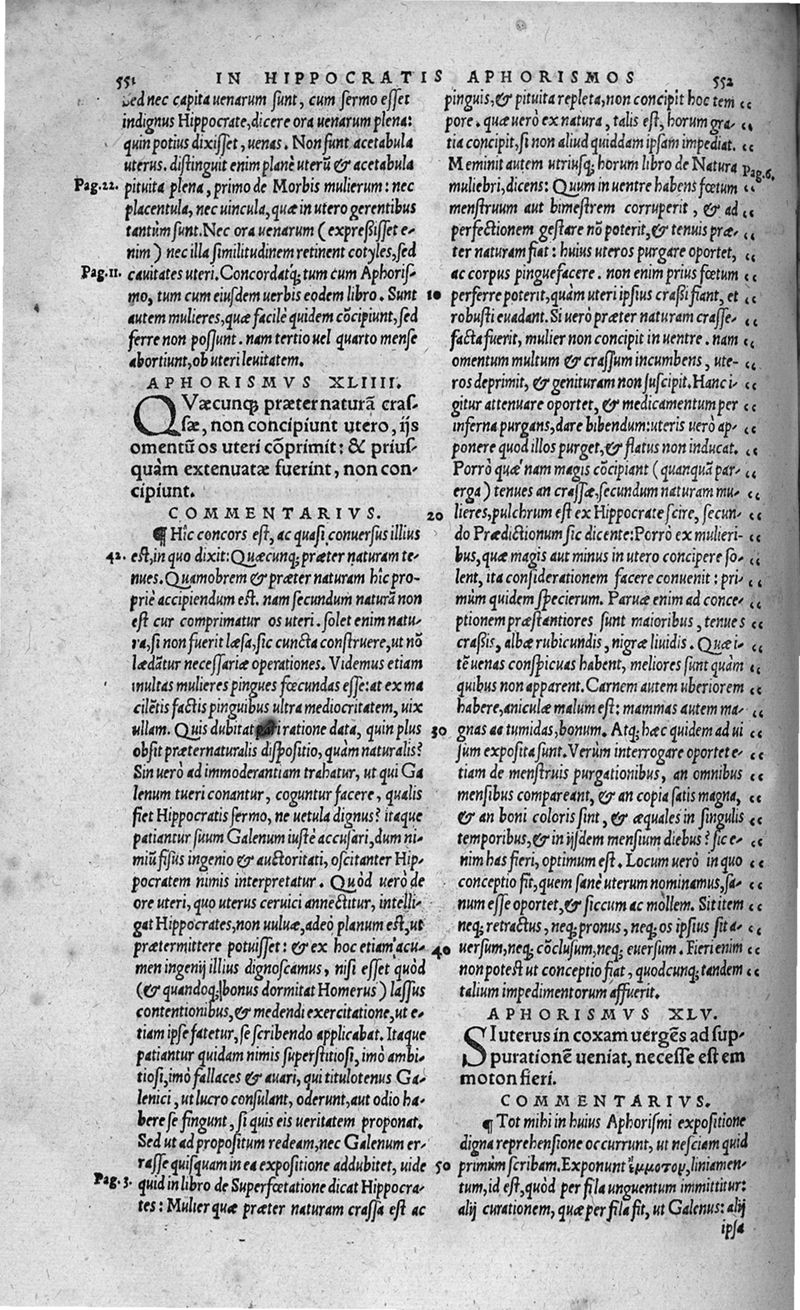 551 IN HIPPOCRATIS APHORISMOS 552
sed nec capita uenarum sunt, cum sermo esset
indignus Hippocrate, dicere ora uenarum plena:
quin potius dixisset, uenas. Non sunt acetabula
uterus. distinguit enim planè uterũ & acetabula
Pag.22. pituita plena, primo de Morbis mulierum: nec
placentula, nec uincula, quæ in utero gerentibus
tantùm sunt. Nec ora uenarum (expreßisset e-
nim) nec illa similitudinem retinent cotyles, sed
Pag.11. cauitates uteri. Concordatq́; tum cum Aphoris-
mo, tum cum eiusdem uerbis eodem libro. Sunt
autem mulieres, quæ facilè quidem cõcipiunt, sed
ferre non possunt. nam tertio uel quarto mense
abortiunt, ob uteri leuitatem.
APHORISMVS XLIIII.
QVæcunq; præter naturã cras-
sæ, non concipiunt utero, ijs
omentũ os uteri cõprimit: & prius-
quàm extenuatæ fuerint, non con-
cipiunt.
COMMENTARIVS.
¶ Hîc concors est, ac quasi conuersus illius
42. est, in quo dixit: Quæcunq; præter naturam te-
nues. Quamobrem & præter naturam hîc pro-
priè accipiendum est. nam secundum naturã non
est cur comprimatur os uteri. solet enim natu-
ra, si non fuerit læsa, sic cuncta construere, ut nõ
lædãtur necessariæ operationes. Videmus etiam
multas mulieres pingues fœcundas esse: at ex ma
cilẽtis factis pinguibus ultra mediocritatem, uix
ullam. Quis dubitat pari ratione data, quin plus
obsit præternaturalis dispositio, quàm naturalis?
Sin uerò ad immoderantiam trahatur, ut qui Ga
lenum tueri conantur, coguntur facere, qualis
fiet Hippocratis sermo, ne uetula dignus? itaque
patiantur suum Galenum iustè accusari, dum ni-
miũ fisus ingenio & auctoritati, oscitanter Hip-
pocratem nimis interpretatur. Quòd uerò de
ore uteri, quo uterus ceruici annectitur, intelli-
gat Hippocrates, non uuluæ, adeò planum est, ut
prætermittere potuisset: & ex hoc etiam acu-
men ingenij illius dignoscamus, nisi esset quòd
(& quandoq; bonus dormitat Homerus) lassus
contentionibus, & medendi exercitatione, ut e-
tiam ipse fatetur, se scribendo applicabat. Itaque
patiantur quidam nimis superstitiosi, imò ambi-
tiosi, imò fallaces & auari, qui titulotenus Ga-
lenici, ut lucro consulant, oderunt, aut odio ha-
bere se fingunt, si quis eis ueritatem proponat.
Sed ut ad propositum redeam, nec Galenum er-
rasse quisquam in ea expositione addubitet, uide
Pag.3. quid in libro de Superfœtatione dicat Hippocra-
tes: Mulier quæ præter naturam crassa est ac
pinguis, & pituita repleta, non concipit hoc tem “
pore. quæ uerò ex natura, talis est, horum gra- “
tia concipit, si non aliud quiddam ipsam impediat. “
Meminit autem utriusq; horum libro de Natura Pag.6.
muliebri, dicens: Quum in uentre habens fœtum “
menstruum aut bimestrem corruperit, & ad “
perfectionem gestare nõ poterit, & tenuis præ- “
ter naturam fiat: huius uteros purgare oportet, “
ac corpus pinguefacere. non enim prius fœtum “
10 perferre poterit, quàm uteri ipsius craßi fiant, et “
robusti euadant. Si uerò præter naturam crasse- “
facta fuerit, mulier non concipit in uentre. nam “
omentum multum & crassum incumbens, ute- “
ros deprimit, & genituram non suscipit. Hanc i- “
gitur attenuare oportet, & medicamentum per “
inferna purgans, dare bibendum: uteris uerò ap- “
ponere quod illos purget, & flatus non inducat. “
Porrò quæ nam magis cõcipiant (quanquã par-
erga) tenues an crassæ, secundum naturam mu-
20 lieres, pulchrum est ex Hippocrate scire, secun-
do Prædictionum sic dicente: Porrò ex mulieri- “
bus, quæ magis aut minus in utero concipere so- “
lent, ita considerationem facere conuenit: pri- “
mùm quidem specierum. Paruæ enim ad conce- “
ptionem præstantiores sunt maioribus, tenues “
craßis, albæ rubicundis, nigræ liuidis. Quæ i- “
tẽ uenas conspicuas habent, meliores sunt quàm “
quibus non apparent. Carnem autem uberiorem “
habere, aniculæ malum est: mammas autem ma- “
30 gnas ac tumidas, bonum. Atq; hæc quidem ad ui “
sum exposita sunt. Verùm interrogare oportet e- “
tiam de menstruis purgationibus, an omnibus “
mensibus compareant, & an copia satis magna, “
& an boni coloris sint, & æquales in singulis “
temporibus, & in ijsdem mensium diebus? sic e- “
nim has fieri, optimum est. Locum uerò in quo “
conceptio fit, quem sanè uterum nominamus, sa- “
num esse oportet, & siccum ac mollem. Sit item “
neq; retractus, neq; pronus, neq; os ipsius sit a- “
40 uersum, neq; cõclusum, neq; euersum. Fieri enim “
non potest ut conceptio fiat, quodcunq; tandem “
talium impedimentorum affuerit.
APHORISMVS XLV.
SI uterus in coxam uergẽs ad sup-
purationẽ ueniat, necesse est em
moton fieri.
COMMENTARIVS.
¶ Tot mihi in huius Aphorismi expositione
digna reprehensione occurrunt, ut nesciam quid
50 primùm scribam. Exponunt ἔμμοτον, liniamen-
tum, id est, quòd per fila unguentum immittitur:
alij curationem, quæ per fila fit, ut Galenus: alij
ipsa